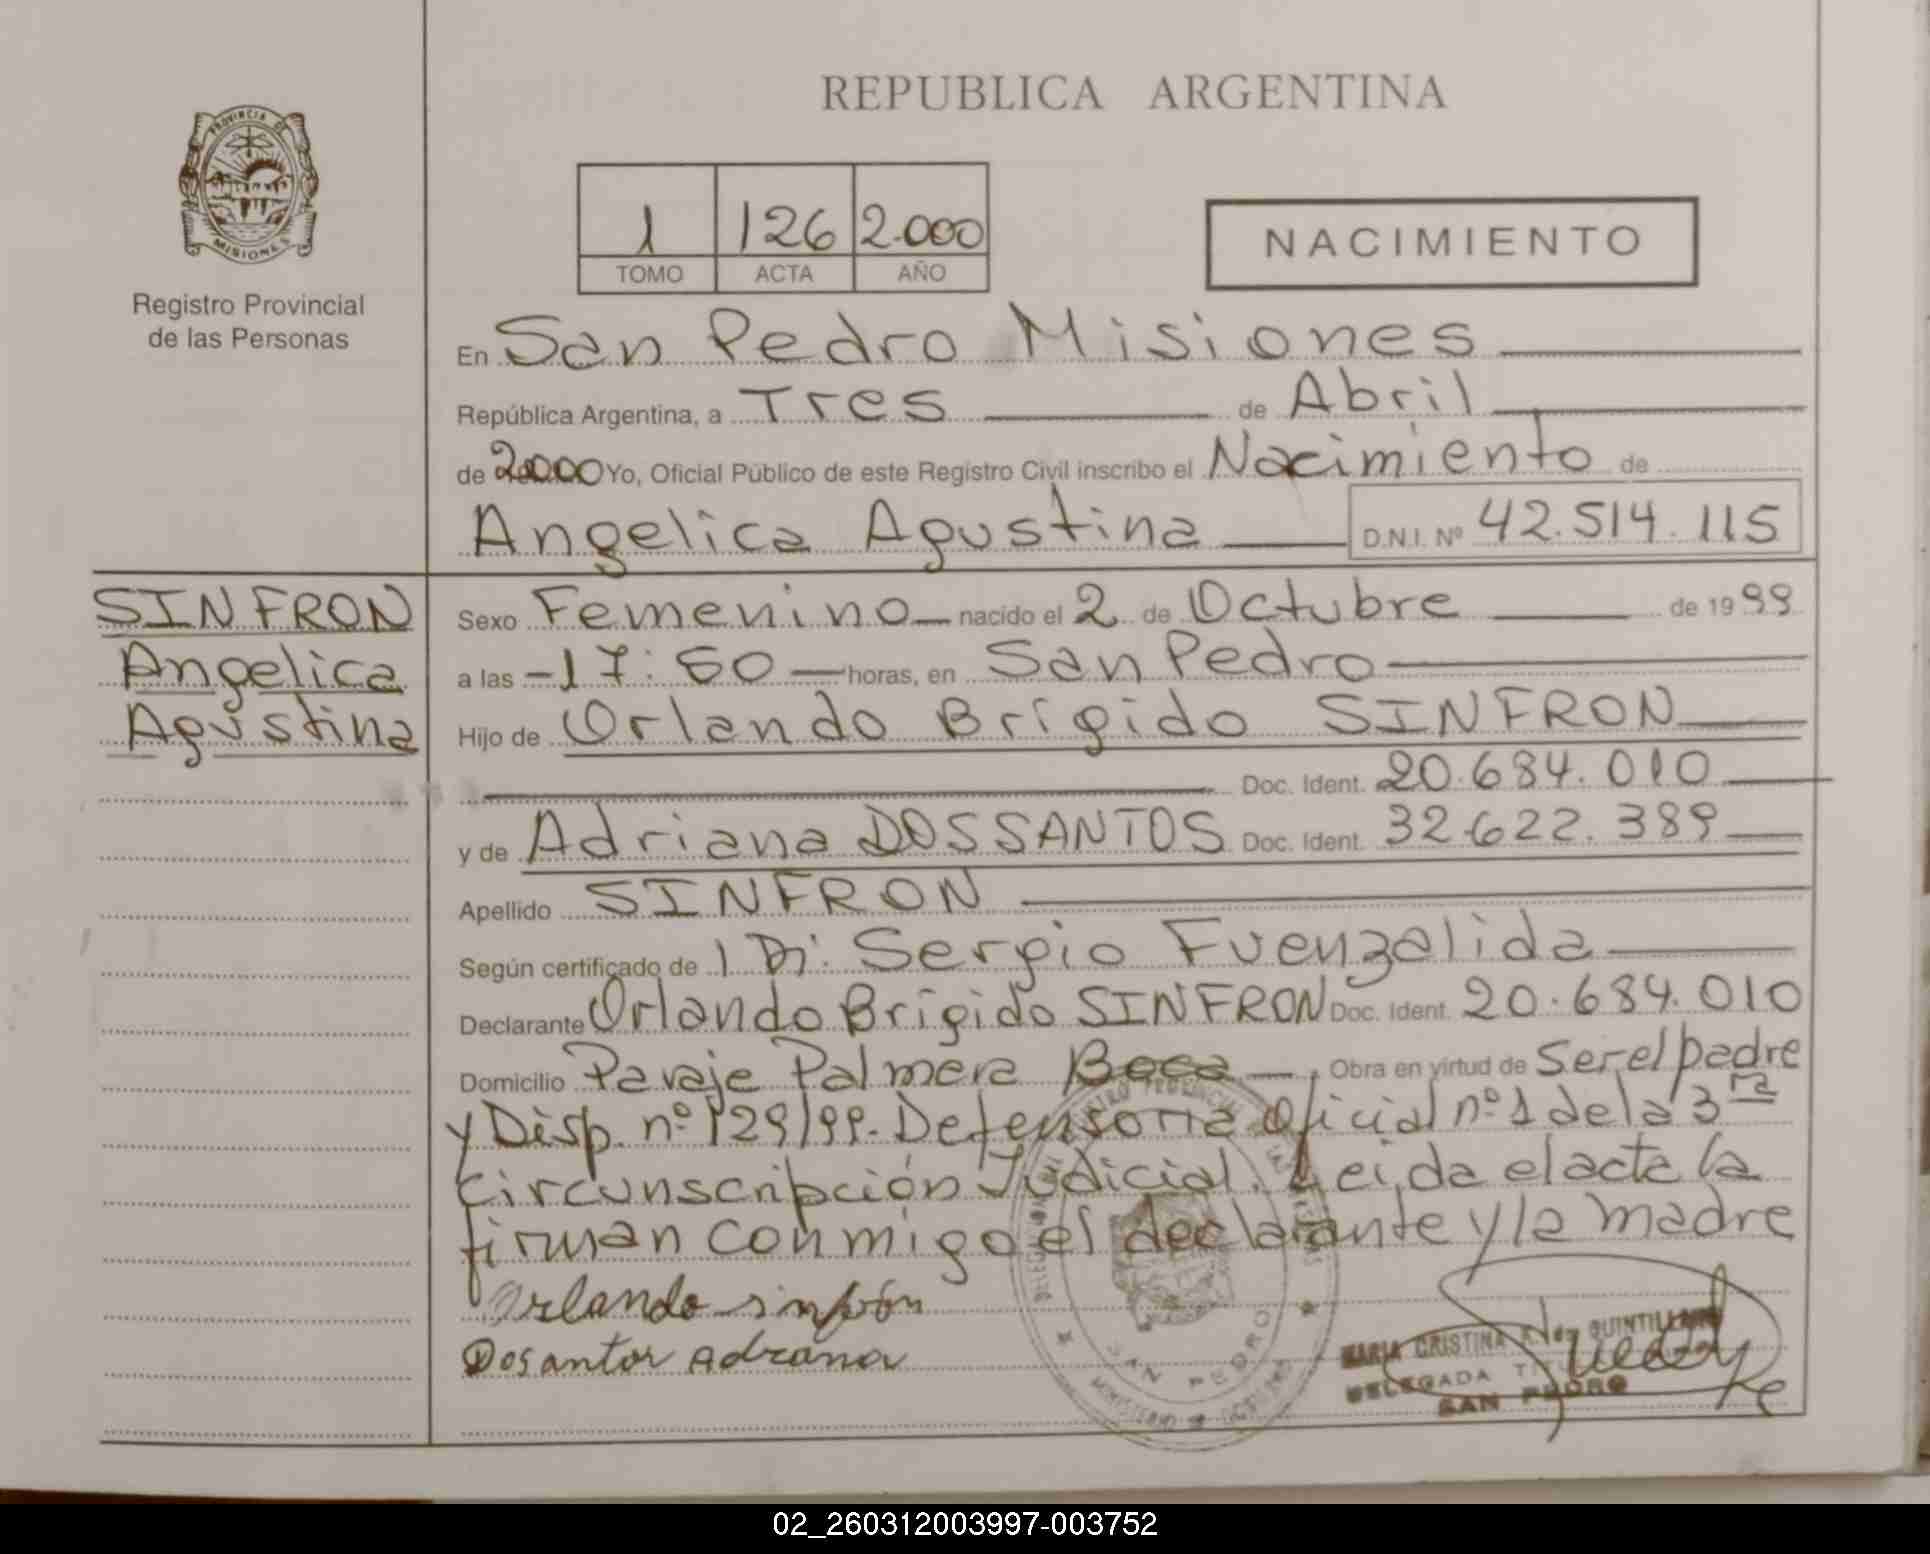 REPUBLICA ARGENTINA
PROVINCIA DE
MISIONES
Registro Provincial
de las Personas
1 126 2.000
TOMO ACTA AÑO
NACIMIENTO
En San Pedro Misiones
República Argentina, a Tres de Abril
de 2000 Yo, Oficial Público de este Registro Civil inscribo el Nacimiento de
Angelica Agustina D.N.I. Nº 42.514.115
SINFRON
Angelica
Agustina
Sexo Femenino nacido el 2 de Octubre de 1999
a las -17:50 horas, en San Pedro
Hijo de Orlando Brígido SINFRON
Doc. Ident. 20.684.010
y de Adriana DOSSANTOS Doc. Ident. 32.622.389
Apellido SINFRON
Según certificado de Sergio Fuenzalida
Declarante Orlando Brígido SINFRON Doc. Ident. 20.684.010
Domicilio Paraje Palmera Boca Obra en virtud de Ser el padre
y Disp. nº 129/99. Defensoria Oficial nº 1 de la 3ra
Circunscripción Judicial. Leida el acta la
firman conmigo el declarante y la madre
Orlando sinfrón
Dosantos Adriana
SAN PEDRO
MARIA CRISTINA QUINTILLAN
DELEGADA
SAN PEDRO
02_260312003997-003752